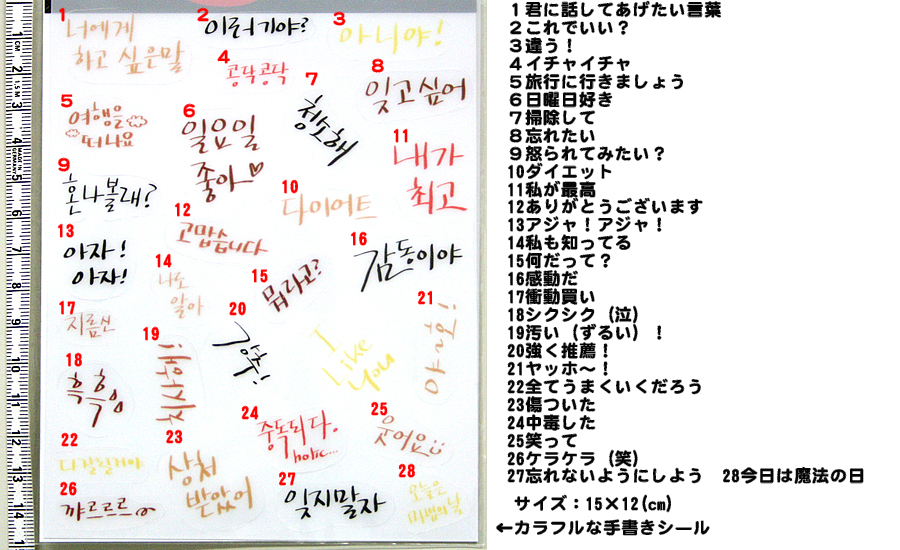 1
너에게
하고 싶은말
2
이러기야?
3
아니야!
4
콩닥콩닥
5
여행을
떠나요
6
일요일
좋아♡
7
청소해
8
잊고싶어
9
혼나볼래?
10
다이어트
11
내가
최고
12
고맙습니다
13
아자!
아자!
14
나도
알아
15
뭐라고?
16
감동이야
17
지름신
18
19
20
강추!
I
Like
You
21
22
다잘될거야
23
상처
받았어
24
중독되다.
holic...
25
웃어요
26
꺄르르르
27
잊지말자
28
오늘은
마법의날
1君に話してあげたい言葉
2これでいい？
3違う！
4イチャイチャ
5旅行に行きましょう
6日曜日好き
7掃除して
8忘れたい
9怒られてみたい？
10ダイエット
11私が最高
12ありがとうございます
13アジャ！アジャ！
14私も知ってる
15何だって？
16感動だ
17衝動買い
18シクシク（泣）
19汚い（ずるい）！
20強く推薦！
21ヤッホ～！
22全てうまくいくだろう
23傷ついた
24中毒した
25笑って
26ケラケラ（笑）
27忘れないようにしよう　28今日は魔法の日
サイズ：15×12(cm)
←カラフルな手書きシール